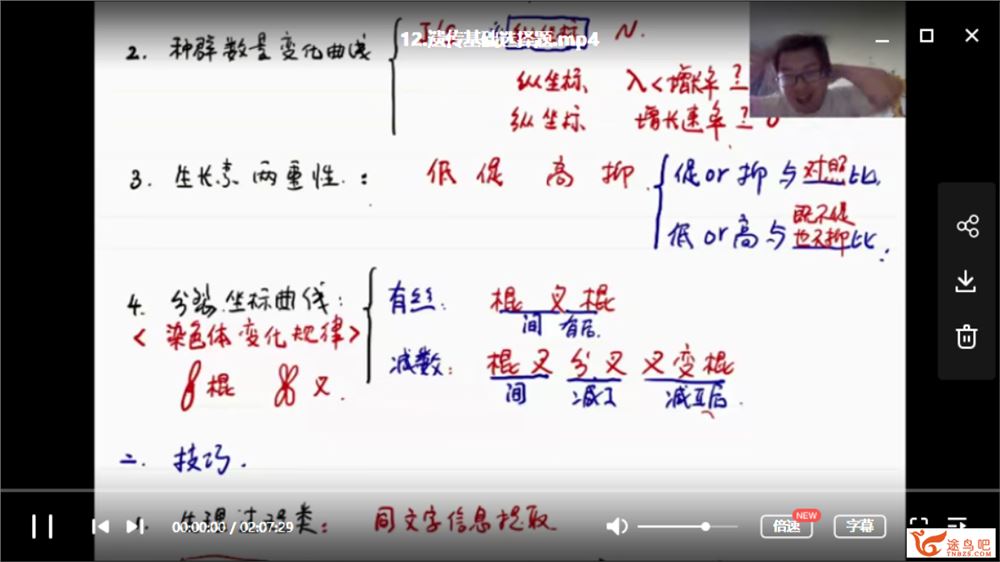 12.遗传基础选择题.mp4
2. 种群数量变化曲线 纵坐标 N.
纵坐标 λ<增长率?
纵坐标 增长速率? 0
3. 生长素两重性: 低促 高抑 促or抑与对照比.
低or高与既不促也不抑比.
4. 分裂坐标曲线: 有丝: 棍 叉 棍
间 有后.
<染色体变化规律>
减数: 棍叉 分叉 叉变棍
棍 叉. 间 减I 减II后.
二. 技巧.
同文字信息提取.
00:00:00 / 02:07:29
倍速
NEW
字幕
途鸟吧
TN8ZS.COM